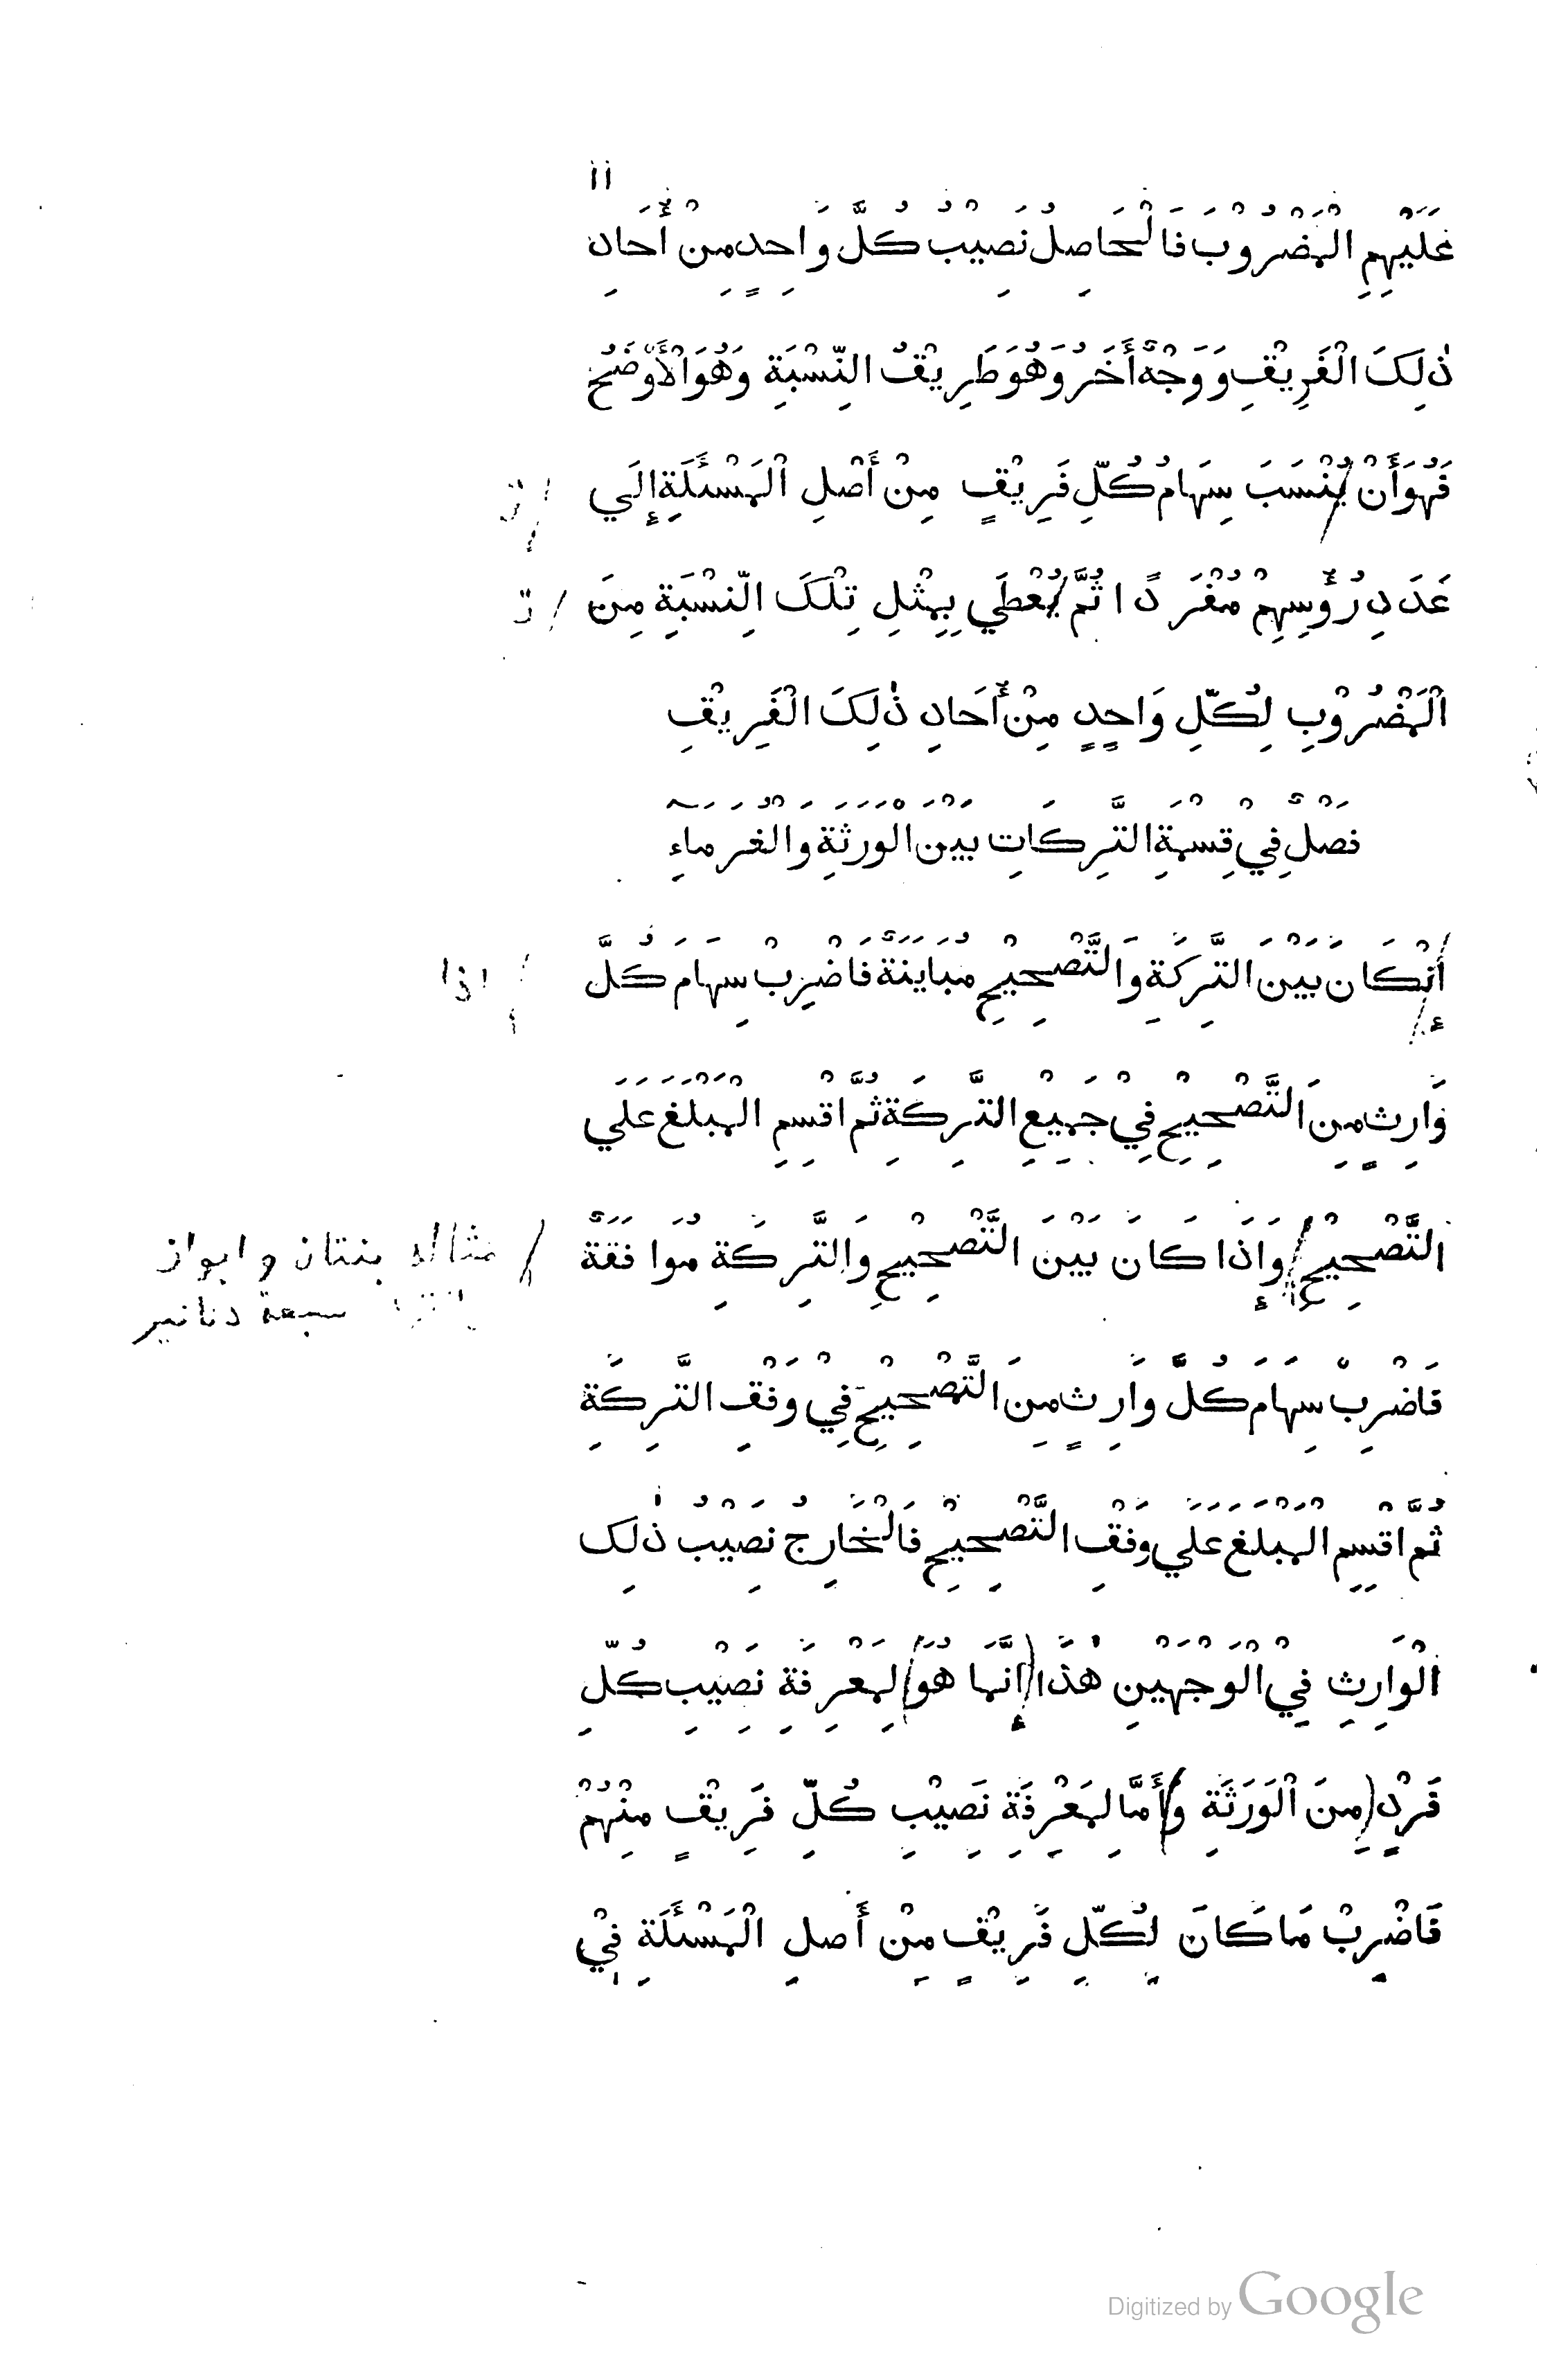 ١١
عَلَيْهِمِ الْمَضْرُوْبَ فَالْحَاصِلُ نَصِيْبُ كُلِّ وَاحِدٍ مِنْ أٓحَادِ
ذٰلِكَ الْفَرِيْقِ وَوَجْهٌ أَخَرُ وَهُوَ طَرِيْقُ النِّسْبَةِ وَهُوَ الْأَوْضَحُ
فَهُوَ أَنْ يُنْسَبَ سِهَامُ كُلِّ فَرِيْقٍ مِنْ أَصْلِ الْمَسْئَلَةِ إِلَي
/ تُ
عَدَدِ رُؤُسِهِمْ مُفْرَدًا ثُمَّ يُعْطَي بِمِثْلِ تِلْكَ النِّسْبَةِ مِنَ
/ تُ
الْمَضْرُوْبِ لِكُلِّ وَاحِدٍ مِنْ أٓحَادِ ذٰلِكَ الْفَرِيْقِ
فَصْلٌ فِيْ قِسْمَةِ التَّرِكَاتِ بَيْنَ الْوَرَثَةِ وَالْغُرَمَاءِ
أِنْ كَانَ بَيْنَ التَّرِكَةِ وَالتَّصْحِيْحِ مُبَايَنَةٌ فَاضْرِبْ سِهَامَ كُلِّ
/ اذا
وَارِثٍ مِنَ التَّصْحِيْحِ فِيْ جَمِيْعِ التَّرِكَةِ ثُمَّ اقْسِمِ الْمَبْلَغَ عَلَي
التَّصْحِيْحِ / وَإِذَا كَانَ بَيْنَ التَّصْحِيْحِ وَالتَّرِكَةِ مُوَافَقَةٌ
/ مثاله بنتان و ابوان
سبعة دنانير
فَاضْرِبْ سِهَامَ كُلِّ وَارِثٍ مِنَ التَّصْحِيْحِ فِيْ وَفْقِ التَّرِكَةِ
ثُمَّ اقْسِمِ الْمَبْلَغَ عَلَي وَفْقِ التَّصْحِيْحِ فَالْخَارِجُ نَصِيْبُ ذٰلِكَ
الْوَارِثِ فِيْ الْوَجْهَيْنِ هٰذَا (إِنَّمَا هُوَ) لِمَعْرِفَةِ نَصِيْبِ كُلِّ
فَرْدٍ (مِنَ الْوَرَثَةِ وَ أَمَّا لِمَعْرِفَةِ نَصِيْبِ كُلِّ فَرِيْقٍ مِنْهُمْ
فَاضْرِبْ مَا كَانَ لِكُلِّ فَرِيْقٍ مِنْ أَصْلِ الْمَسْئَلَةِ فِيْ
Digitized by Google